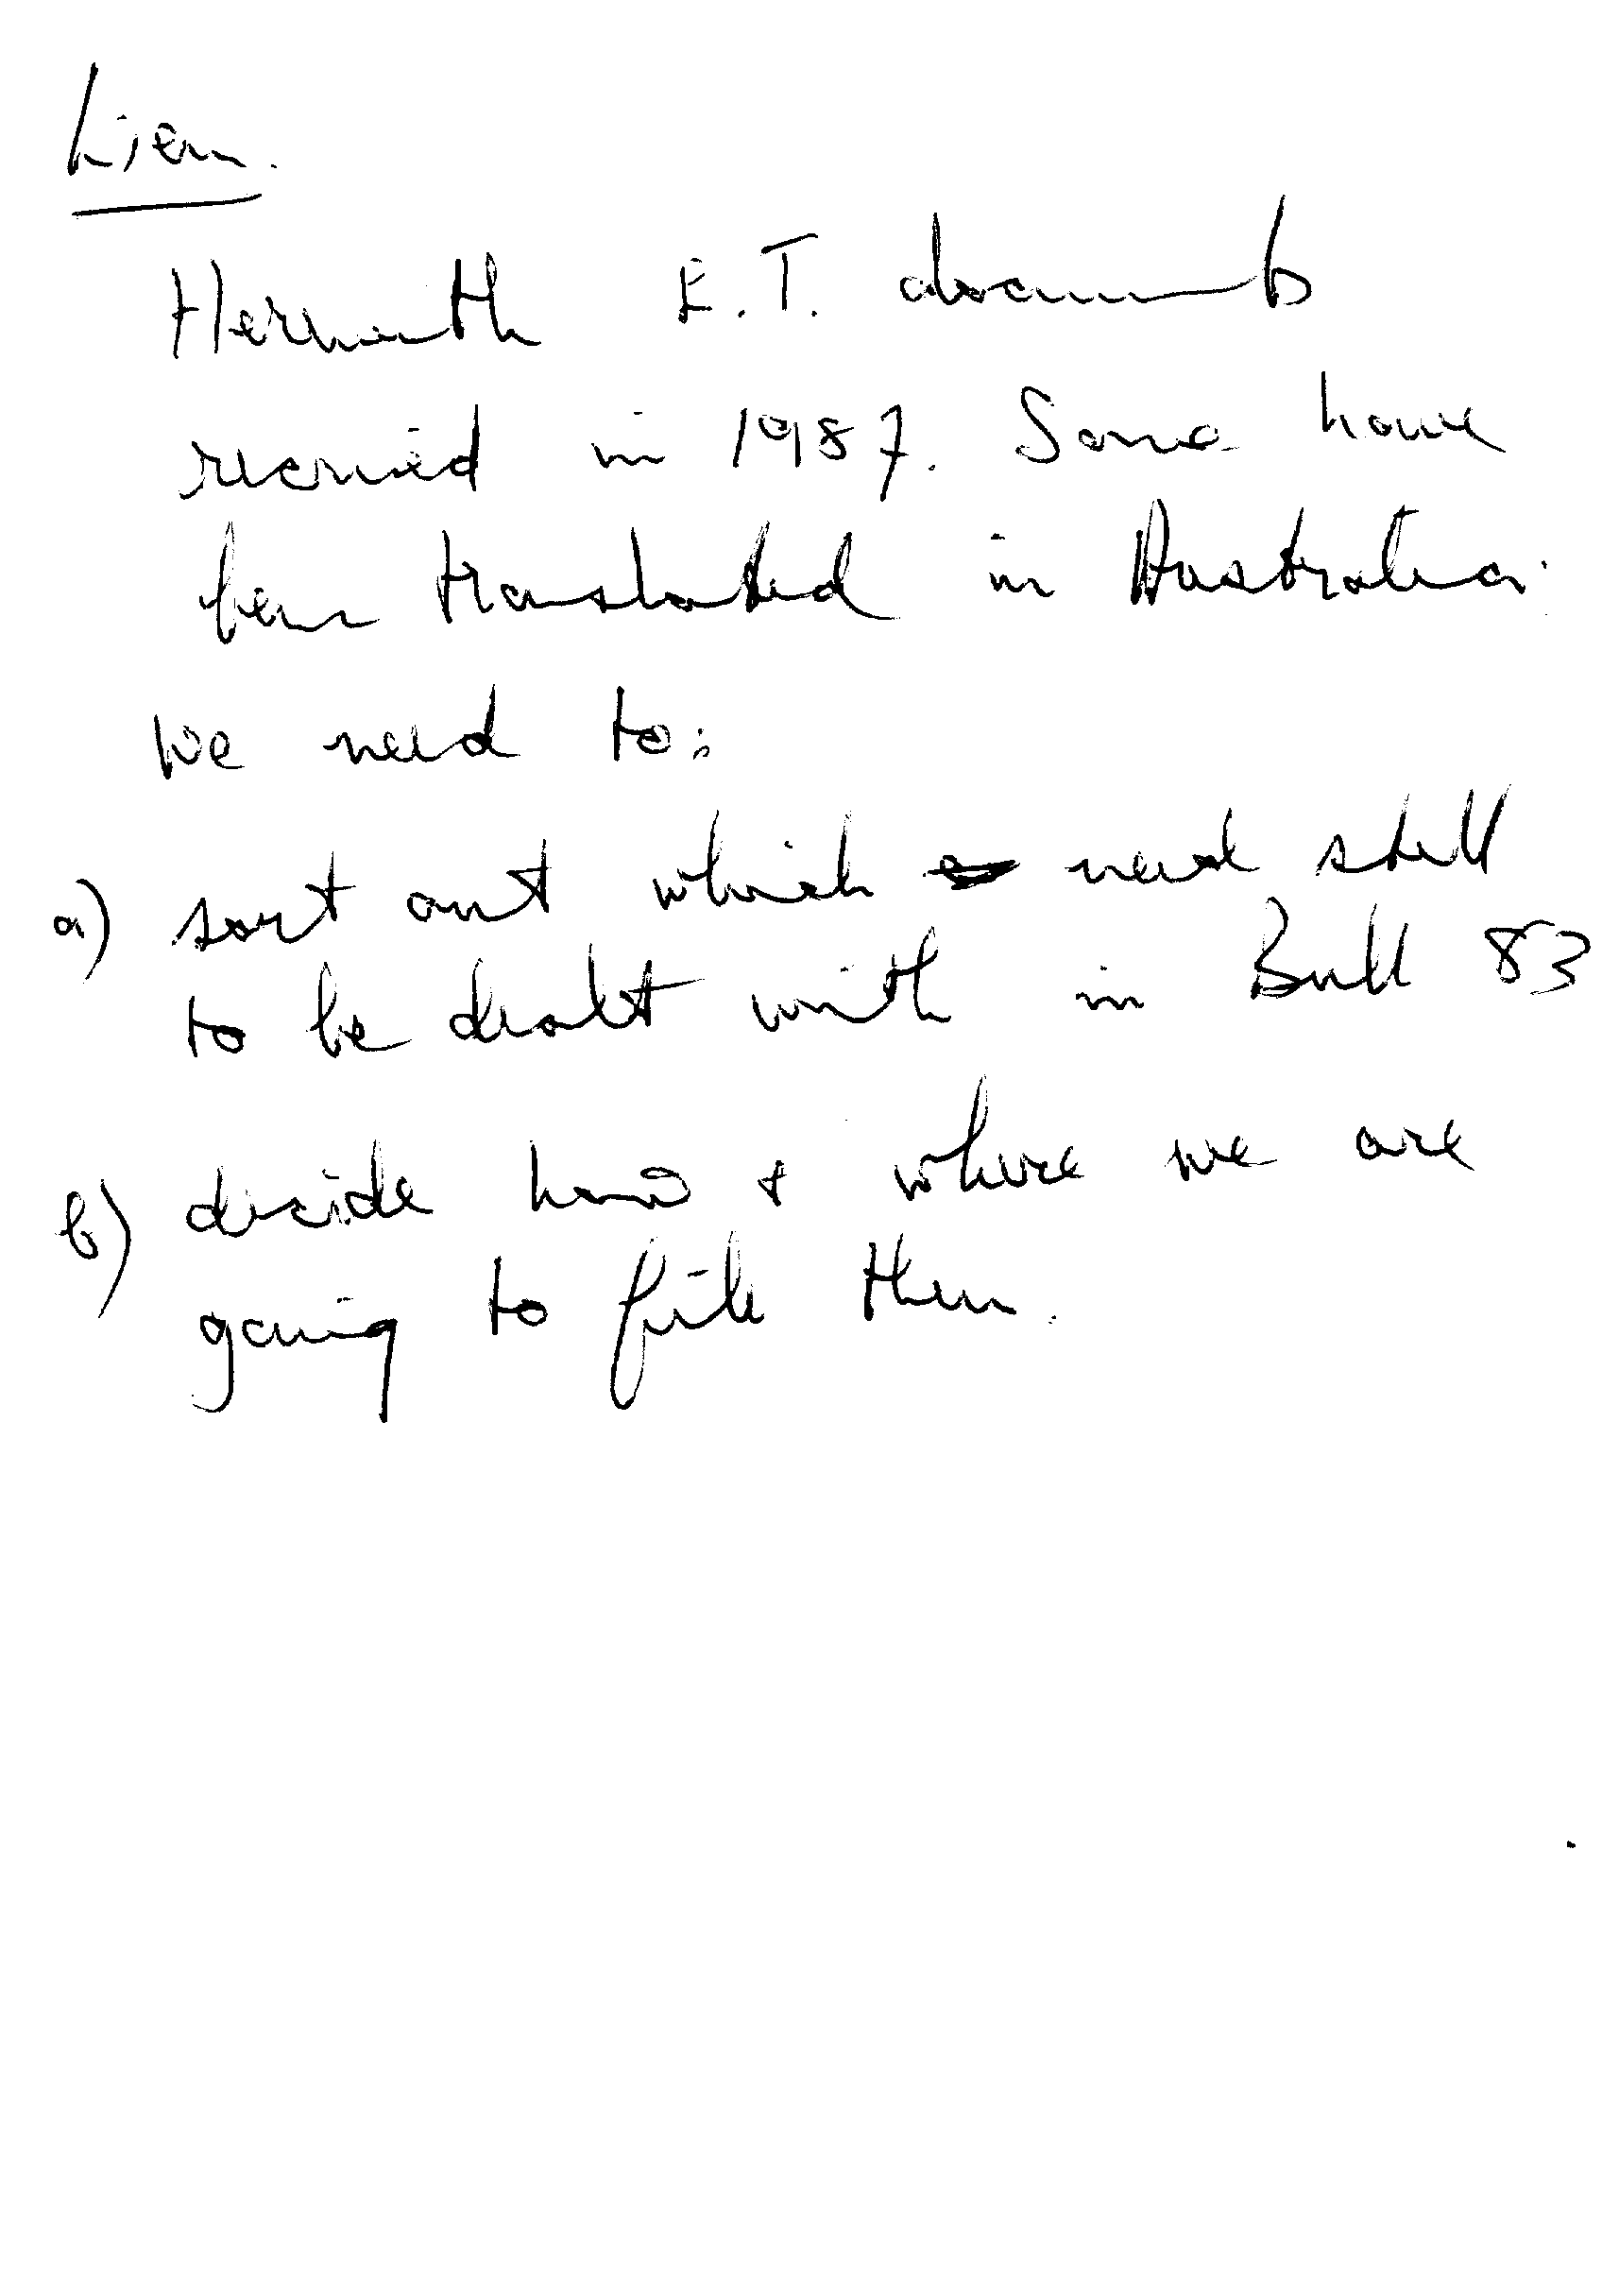 Liem.
Herewith E.T. documents
received in 1987. Some have
been translated in Australia.
We need to:
a) sort out which need still
to be dealt with in Bull 83
b) decide how + where we are
going to file them.